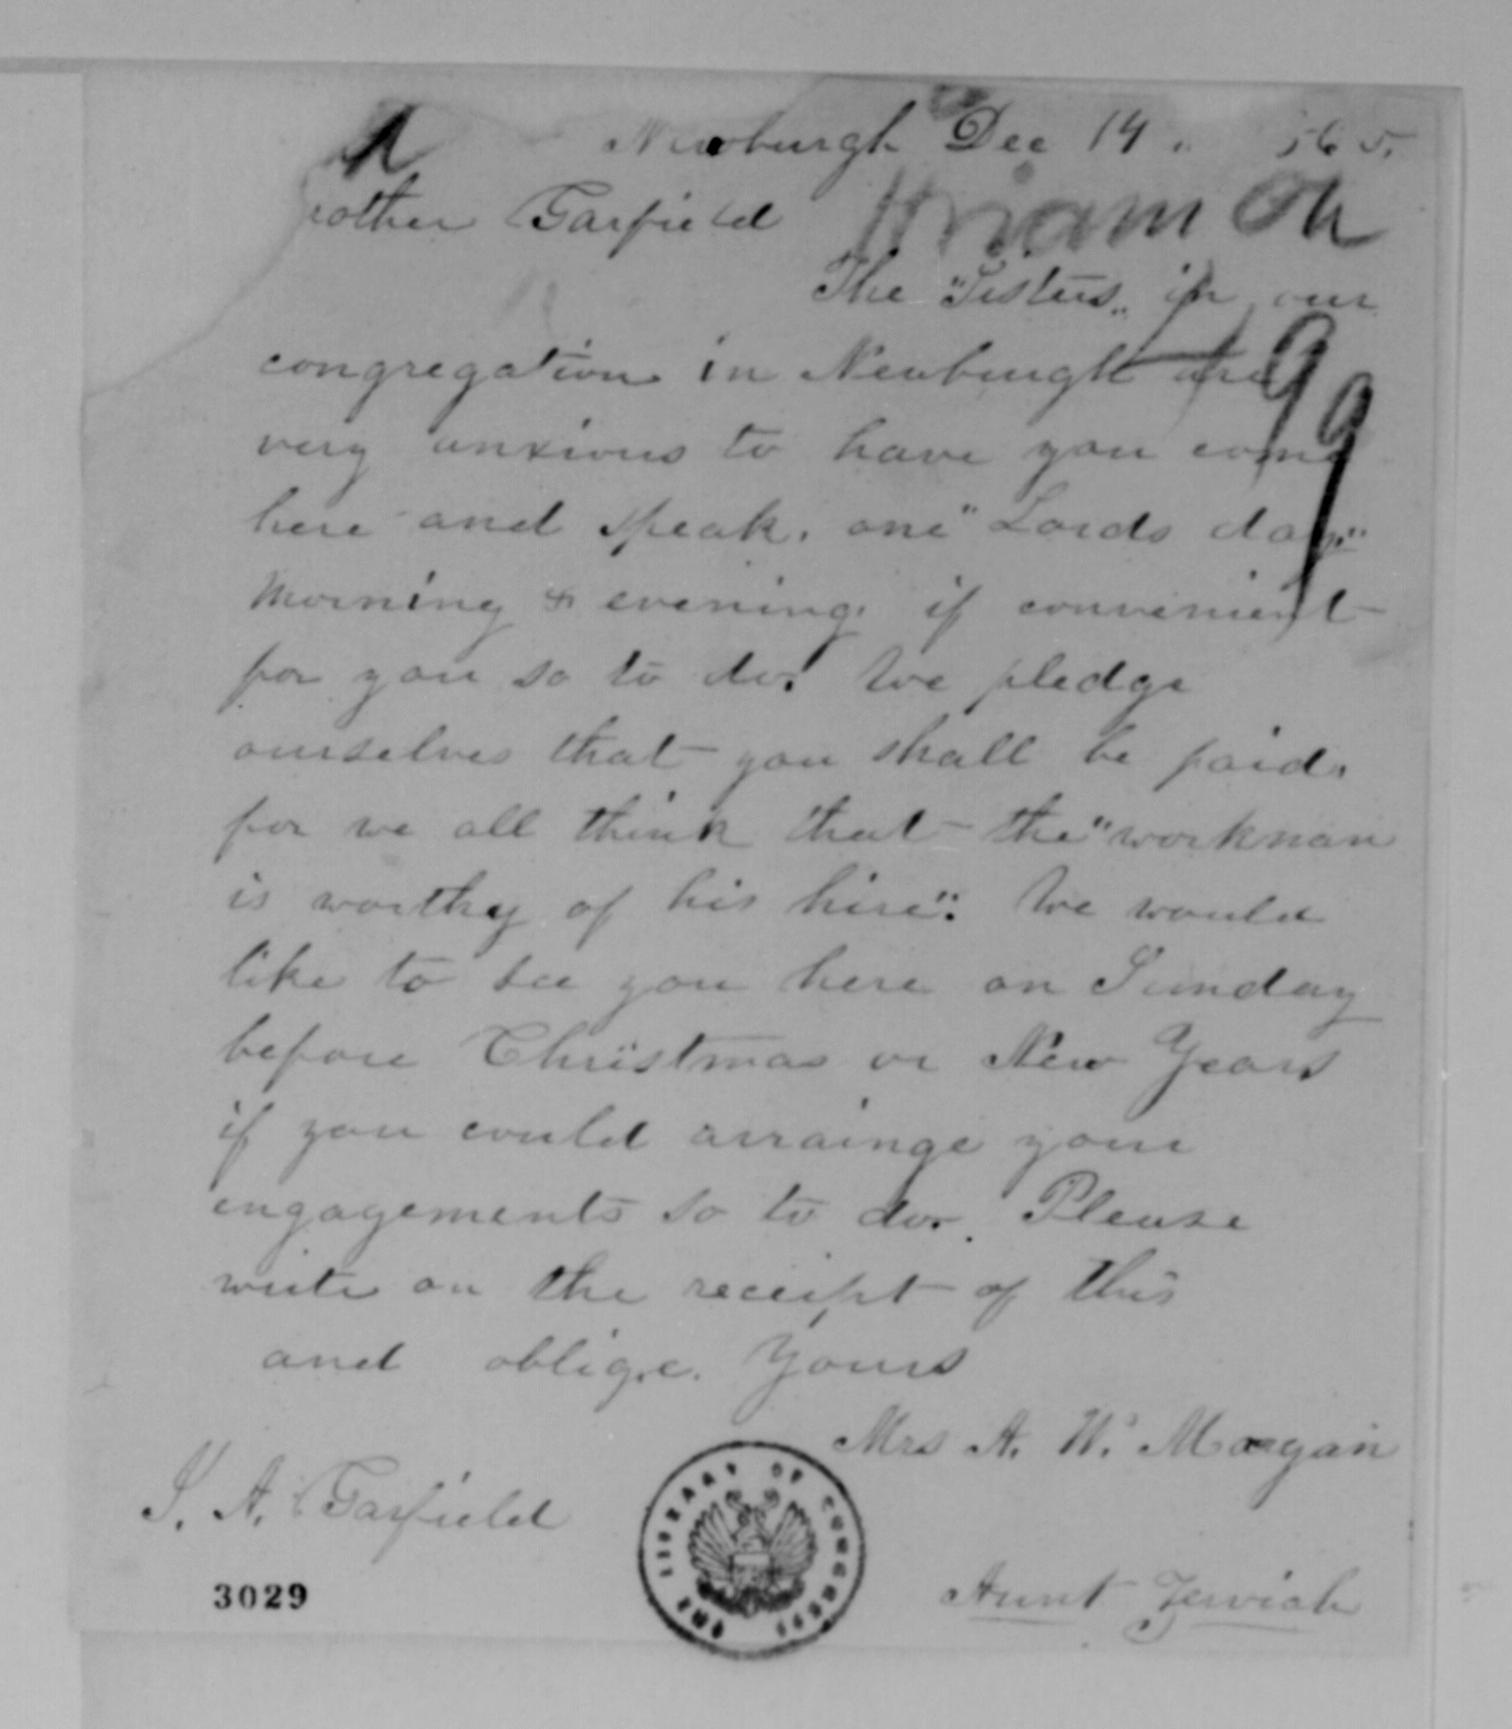 Newburgh Dec 14
rother Garfield
Hiram Oh
The "Sisters" in our
congregation in Newburgh are
very anxious to have you come
here and speak, one "Lords day"
morning & evening, if convenient
for you so to do. We pledge
ourselves that you shall be paid,
for we all think that the "workman
is worthy of his hire". We would
like to see you here on Sunday
before Christmas or New Years
if you could arrainge your
engagements so to do. Please
write on the receipt of this
and oblige. Yours
Mrs A. W. Morgan
J. A. Garfield
THE LIBRARY OF CONGRESS
3029
Aunt Zerviah